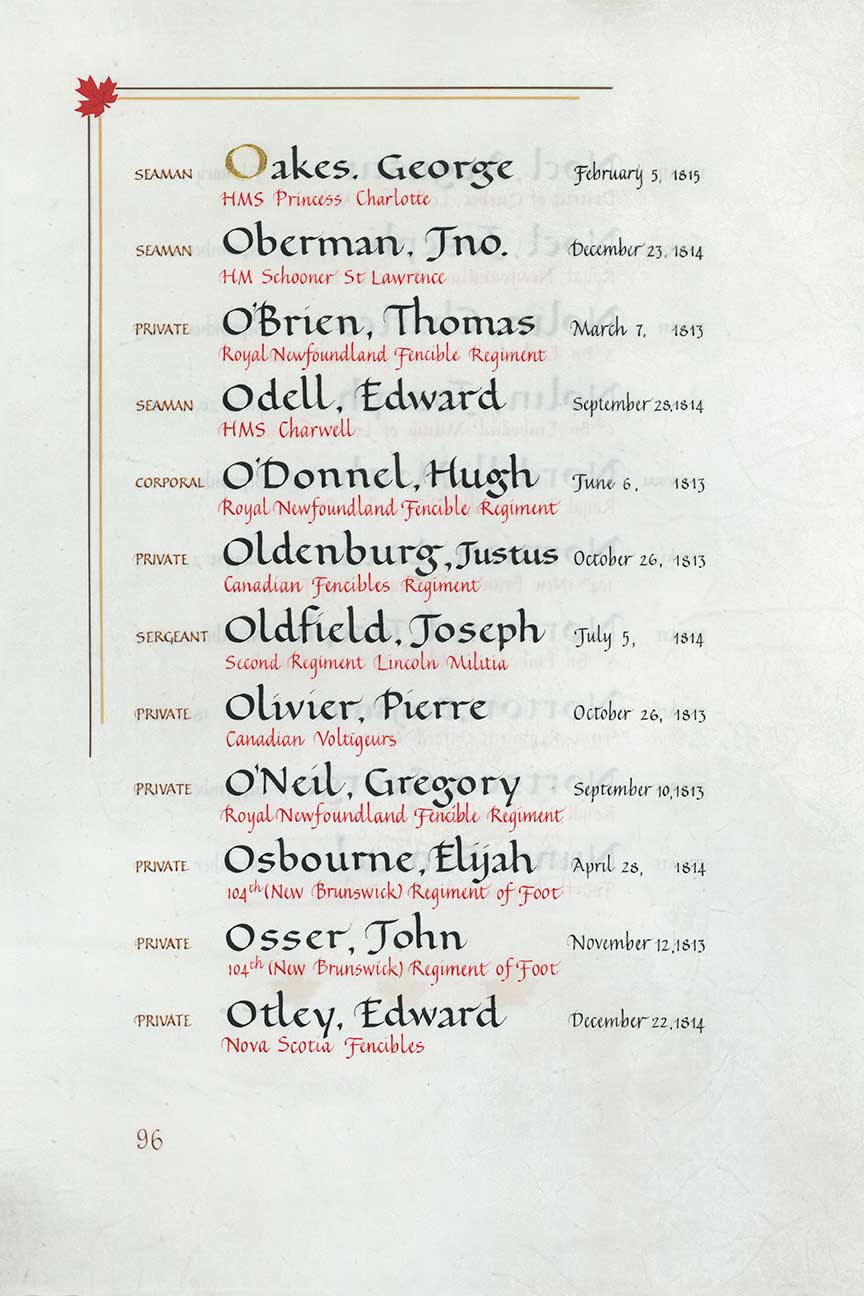 SEAMAN Oakes, George February 5, 1815
HMS Princess Charlotte
SEAMAN Oberman, Jno. December 23, 1814
HM Schooner St Lawrence
PRIVATE O'Brien, Thomas March 7, 1813
Royal Newfoundland Fencible Regiment
SEAMAN Odell, Edward September 28, 1814
HMS Charwell
CORPORAL O'Donnel, Hugh June 6, 1813
Royal Newfoundland Fencible Regiment
PRIVATE Oldenburg, Justus October 26, 1813
Canadian Fencibles Regiment
SERGEANT Oldfield, Joseph July 5, 1814
Second Regiment Lincoln Militia
PRIVATE Olivier, Pierre October 26, 1813
Canadian Voltigeurs
PRIVATE O'Neil, Gregory September 10, 1813
Royal Newfoundland Fencible Regiment
PRIVATE Osbourne, Elijah April 28, 1814
104th (New Brunswick) Regiment of Foot
PRIVATE Osser, John November 12, 1813
104th (New Brunswick) Regiment of Foot
PRIVATE Otley, Edward December 22, 1814
Nova Scotia Fencibles
96